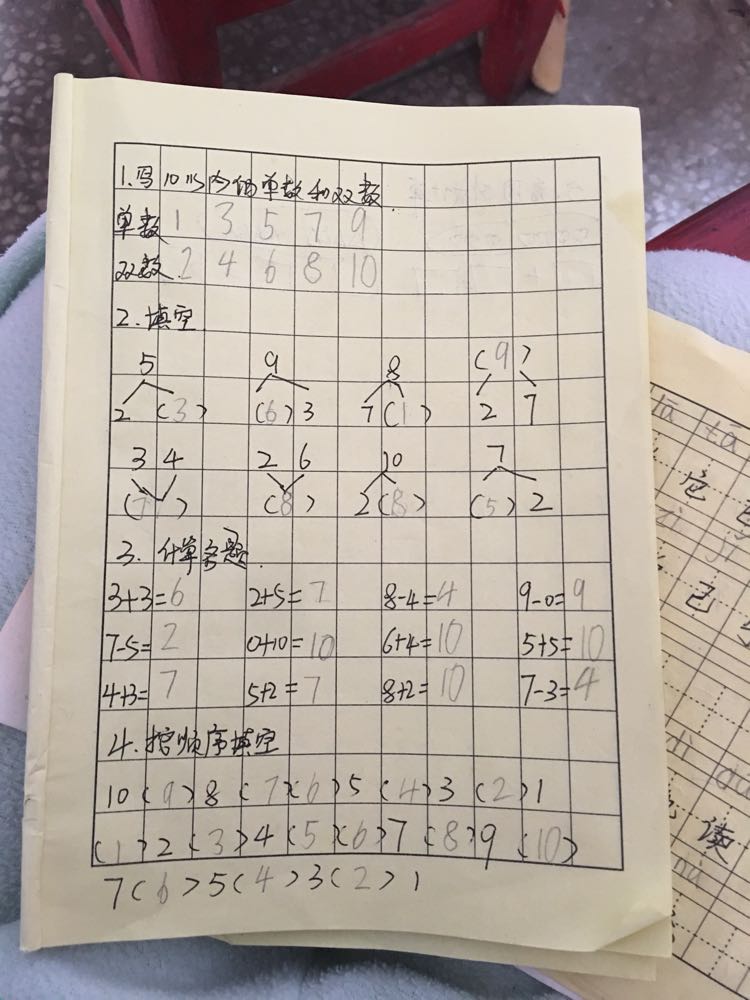 1.写10以内的单数和双数.
单数 1 3 5 7 9
双数. 2 4 6 8 10
2.填空
5 9 8 (9)
2 (3) (6) 3 7 (1) 2 7
3 4 2 6 10 7
(7) (8) 2 (8) (5) 2
3. 计算条题.
3+3=6 2+5=7 8-4=4 9-0=9
7-5=2 0+10=10 6+4=10 5+5=10
4+3=7 5+2=7 8+2=10 7-3=4
4.按顺序填空
10(9)8(7)(6)5(4)3(2)1
(1)2(3)4(5)(6)7(8)9(10)
7(6)5(4)3(2)1
tā tā
己
读